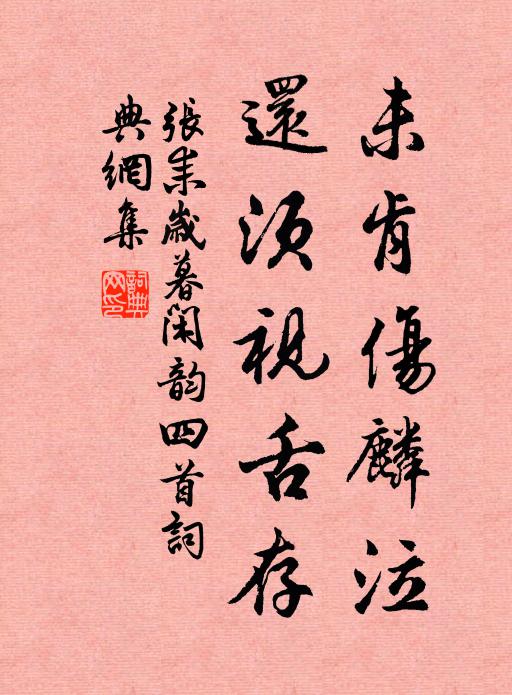 未肯傷麟泣
還須視舌存
張耒歲暮閑韵四首詞
典網集
詞典網印